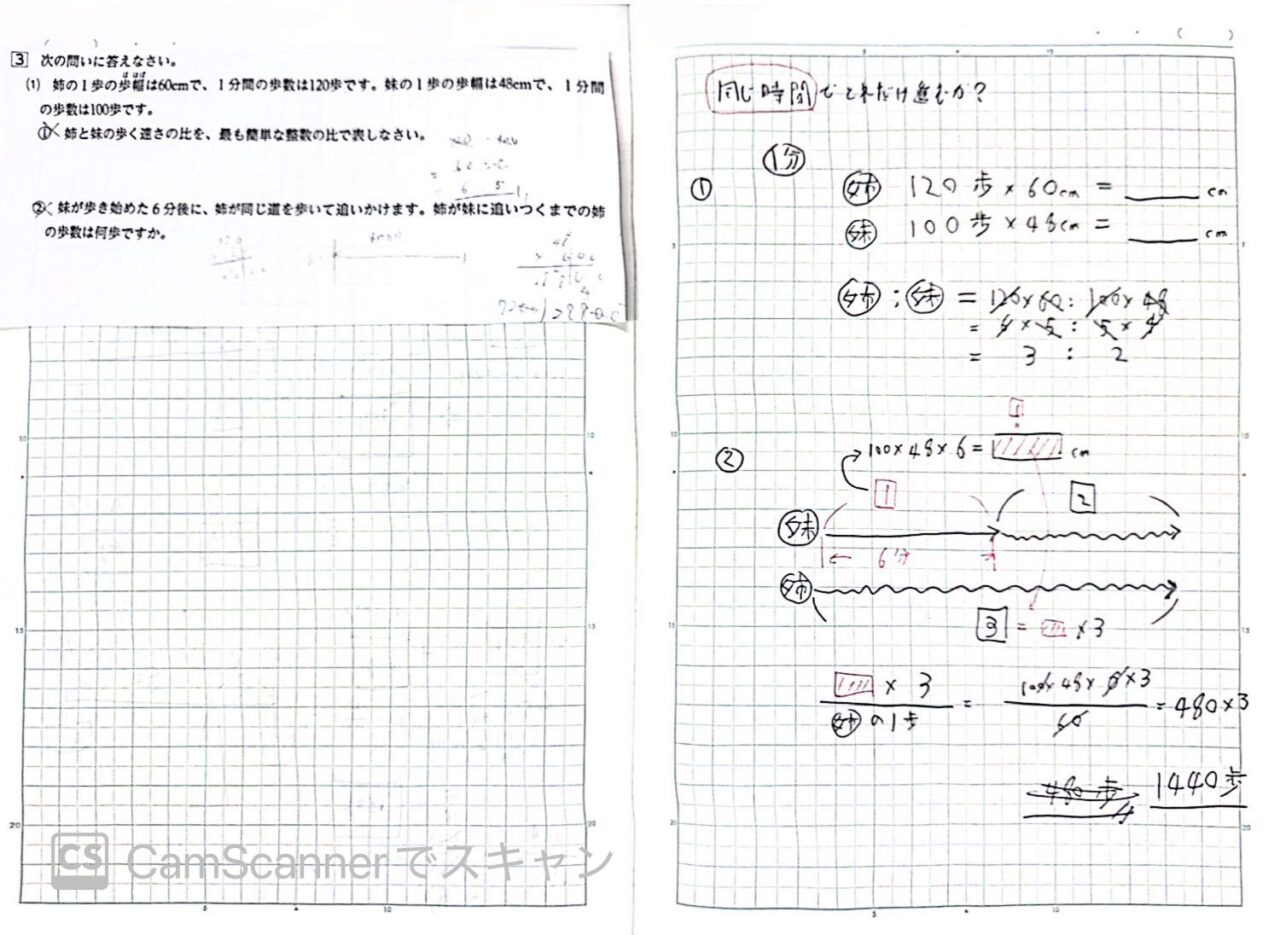 3 次の問いに答えなさい。
(1) 姉の1歩の歩幅は60cmで、1分間の歩数は120歩です。妹の1歩の歩幅は48cmで、1分間
の歩数は100歩です。
① 姉と妹の歩く速さの比を、最も簡単な整数の比で表しなさい。
② 妹が歩き始めた6分後に、姉が同じ道を歩いて追いかけます。姉が妹に追いつくまでの姉
の歩数は何歩ですか。
CS CamScannerでスキャン
同じ時間でどれだけ進むか?
1分
① 姉 120歩×60cm = cm
妹 100歩×48cm = cm
姉:妹 = 120×60:100×48
= 4×5:5×4
= 3 : 2
1
② 100×48×6= cm
1 2
妹
6分
姉
3 = ×3
×3 / 姉の1歩 = 100×48×6×3 / 60 = 480×3
480歩 1440歩